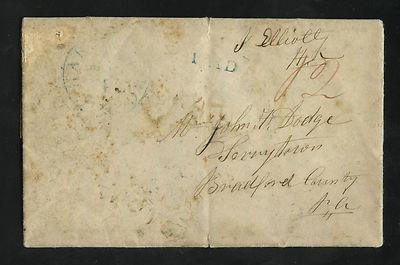 J Elliott
PAID
12
Mr John N. Dodge
Terrytown
Bradford County
Pa